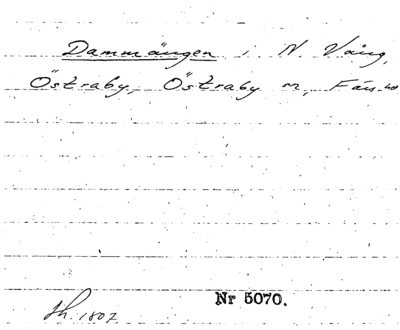 Dammängen i N. Vång,
Östraby, Östraby sn, Färs hd
Nr 5070.
sk. 1807